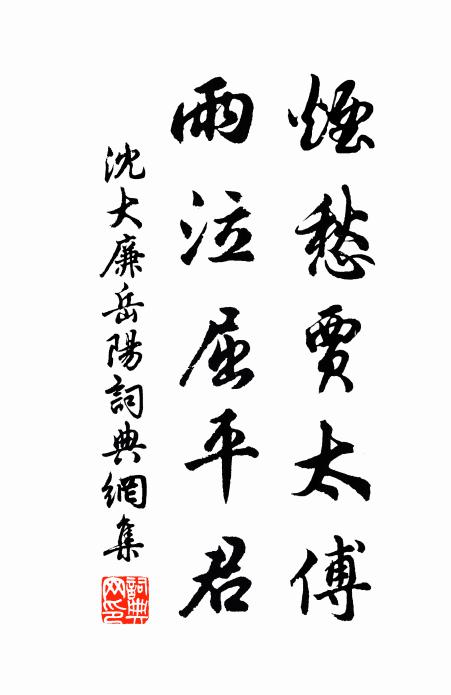 煙愁賈太傅
雨泣屈平君
沈大廉岳陽詞典網集
詞典網印